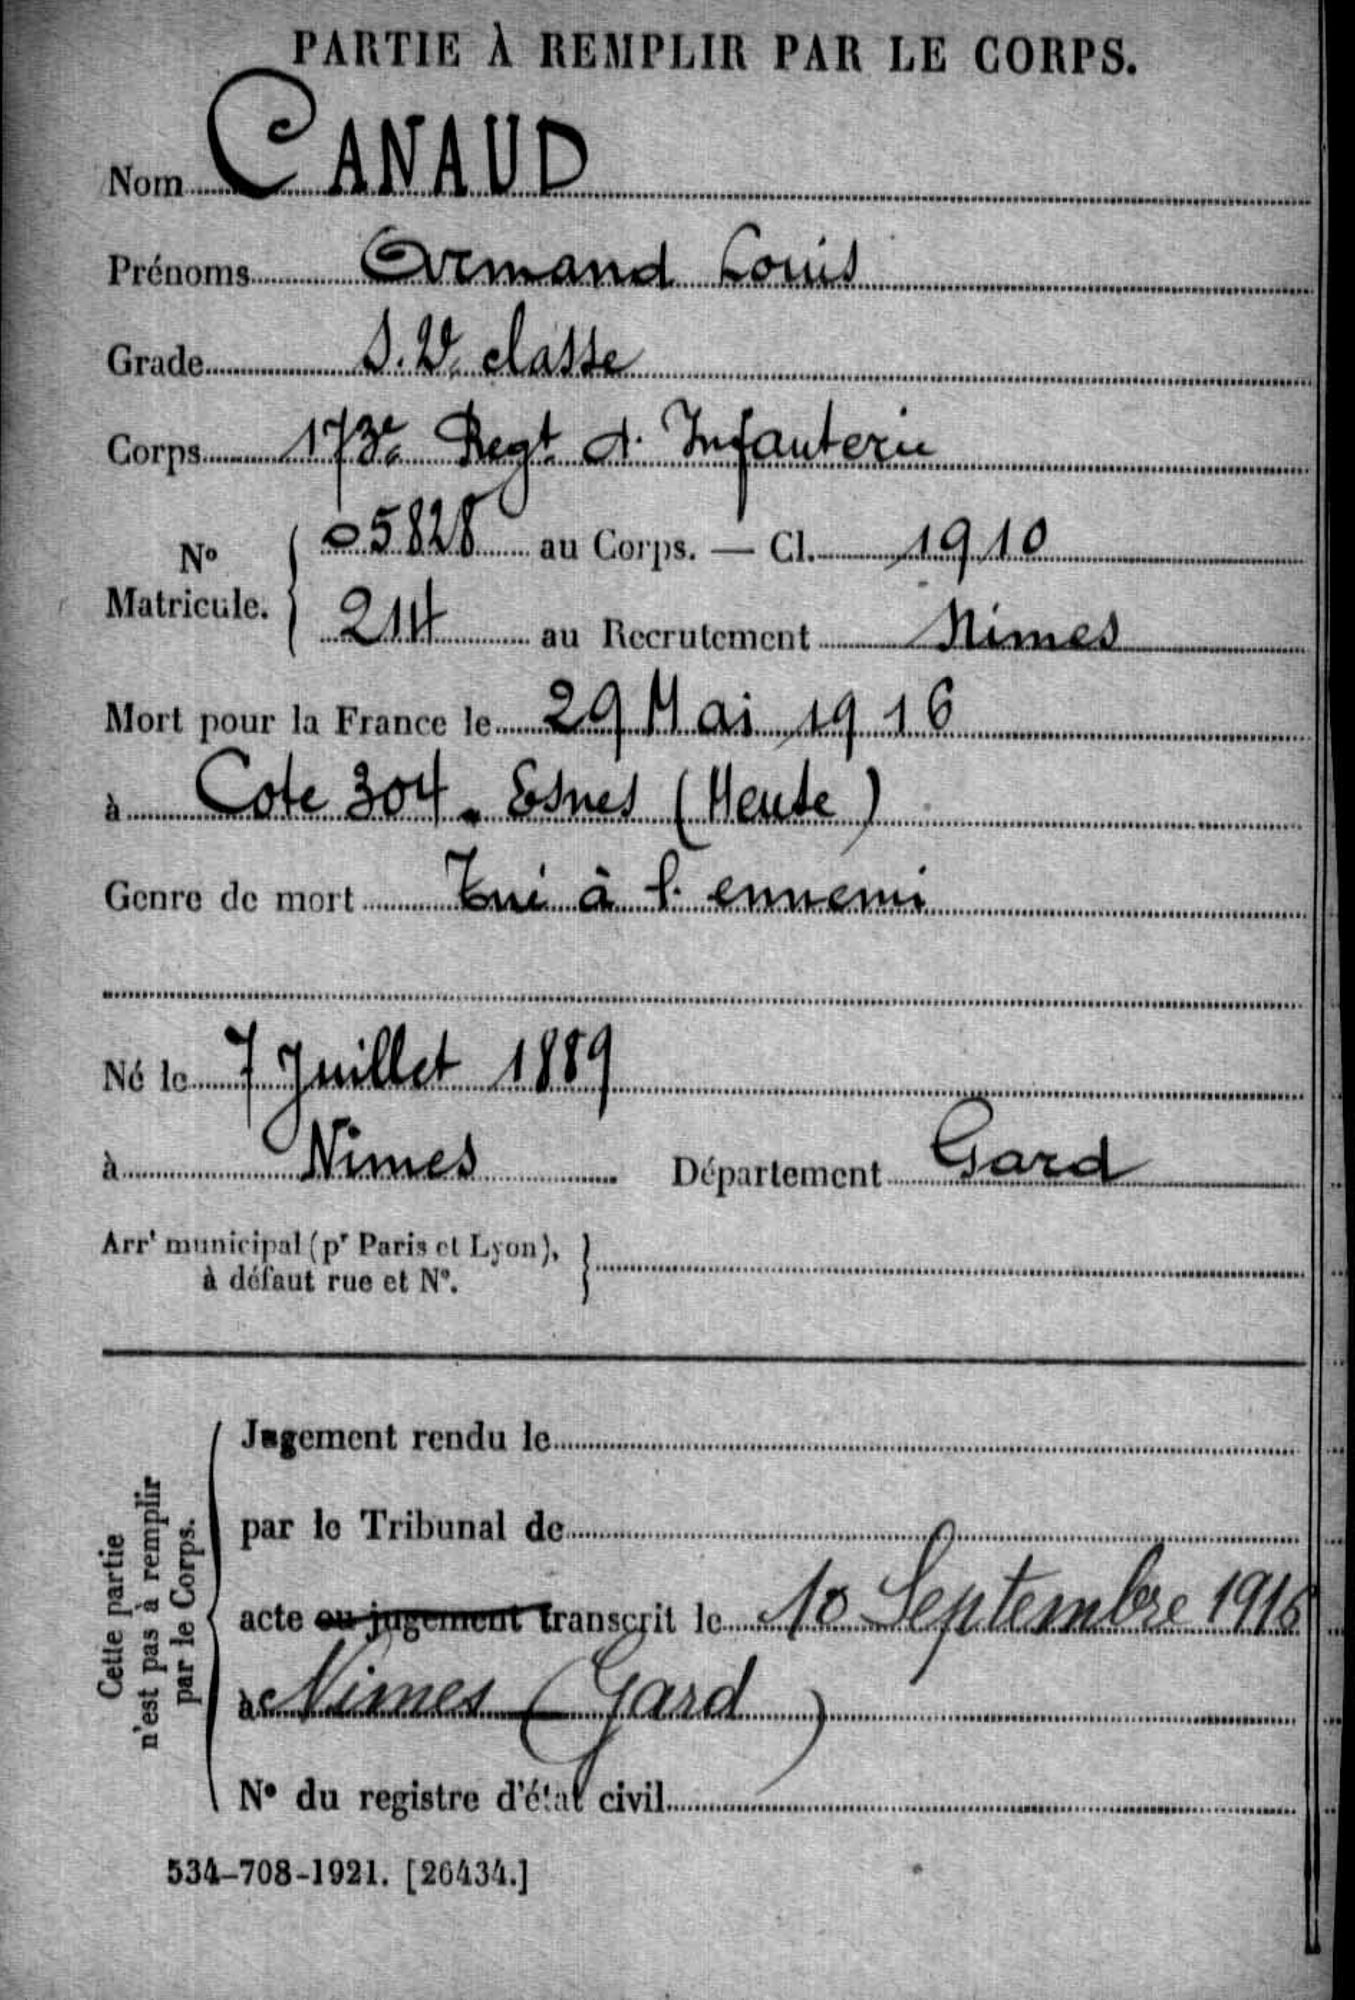 PARTIE À REMPLIR PAR LE CORPS.
Nom CANAUD
Prénoms Armand Louis
Grade S. 2e classe
Corps 173e Regt d'Infanterie
No Matricule. 05828 au Corps. — Cl. 1910
214 au Recrutement Nimes
Mort pour la France le 29 Mai 1916
à Cote 304. Esnes (Meuse)
Genre de mort Tué à l'ennemi
Né le 7 Juillet 1889
à Nimes Département Gard
Arrt municipal (pr Paris et Lyon),
à défaut rue et No.
Cette partie
n'est pas à remplir
par le Corps.
Jugement rendu le
par le Tribunal de
acte ou jugement transcrit le 10 Septembre 1916
à Nimes (Gard)
No du registre d'état civil
534-708-1921. [26434.]